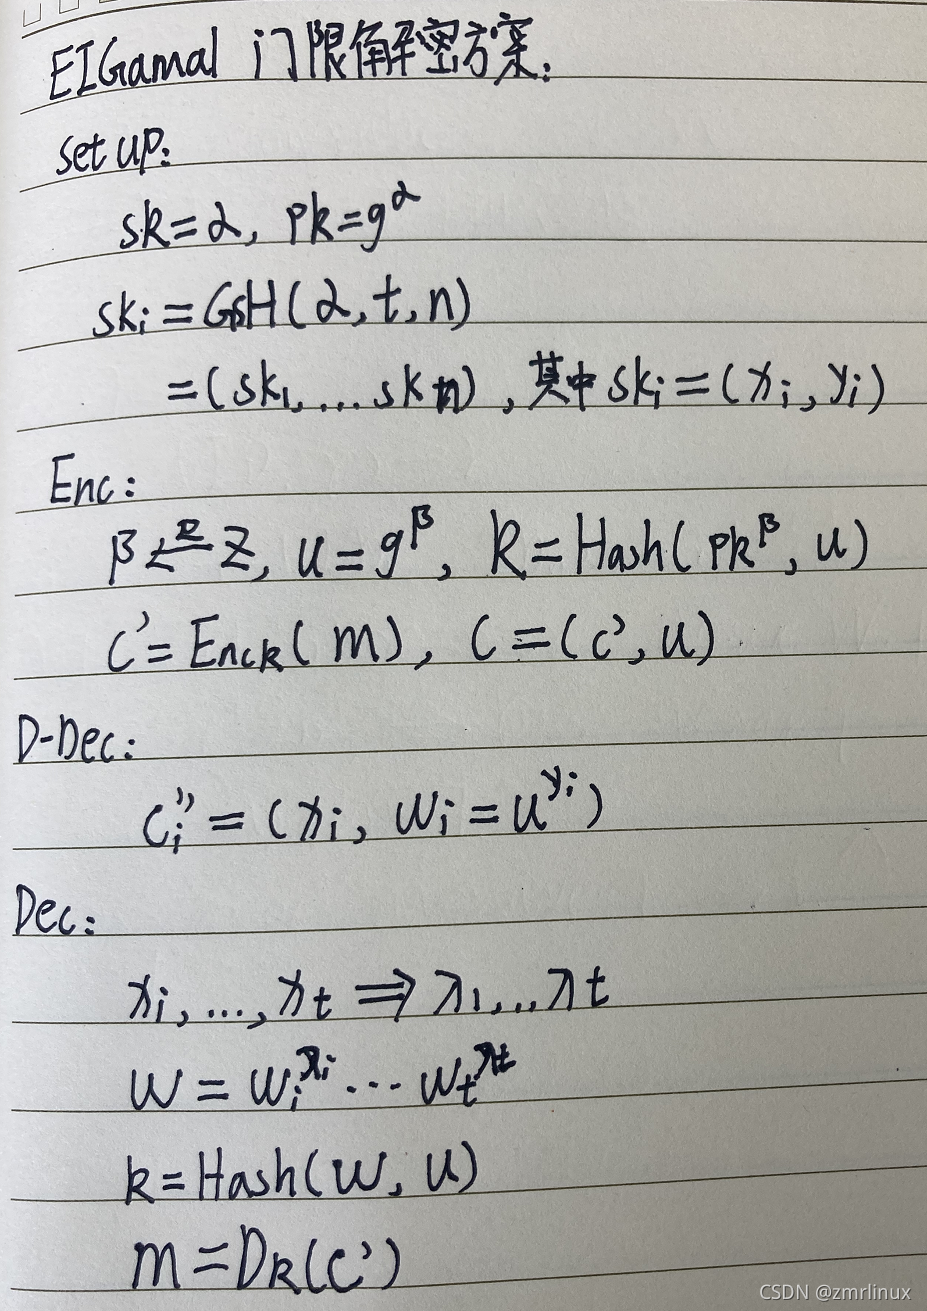 EIGamal 门限解密方案:
set up:
sk=α, pk=g^α
sk_i=GsH(α,t,n)
=(sk_1,...sk_n), 其中sk_i=(x_i,y_i)
Enc:
β ←^R Z, u=g^β, k=Hash(pk^β, u)
c'=Enc_k(m), c=(c', u)
D-Dec:
c_i''=(x_i, w_i=u^{y_i})
Dec:
x_i,...,x_t ⇒ λ_1,..λ_t
w=w_i^{λ_i}...w_t^{λ_t}
k=Hash(w,u)
m=D_k(c')
CSDN @zmrlinux